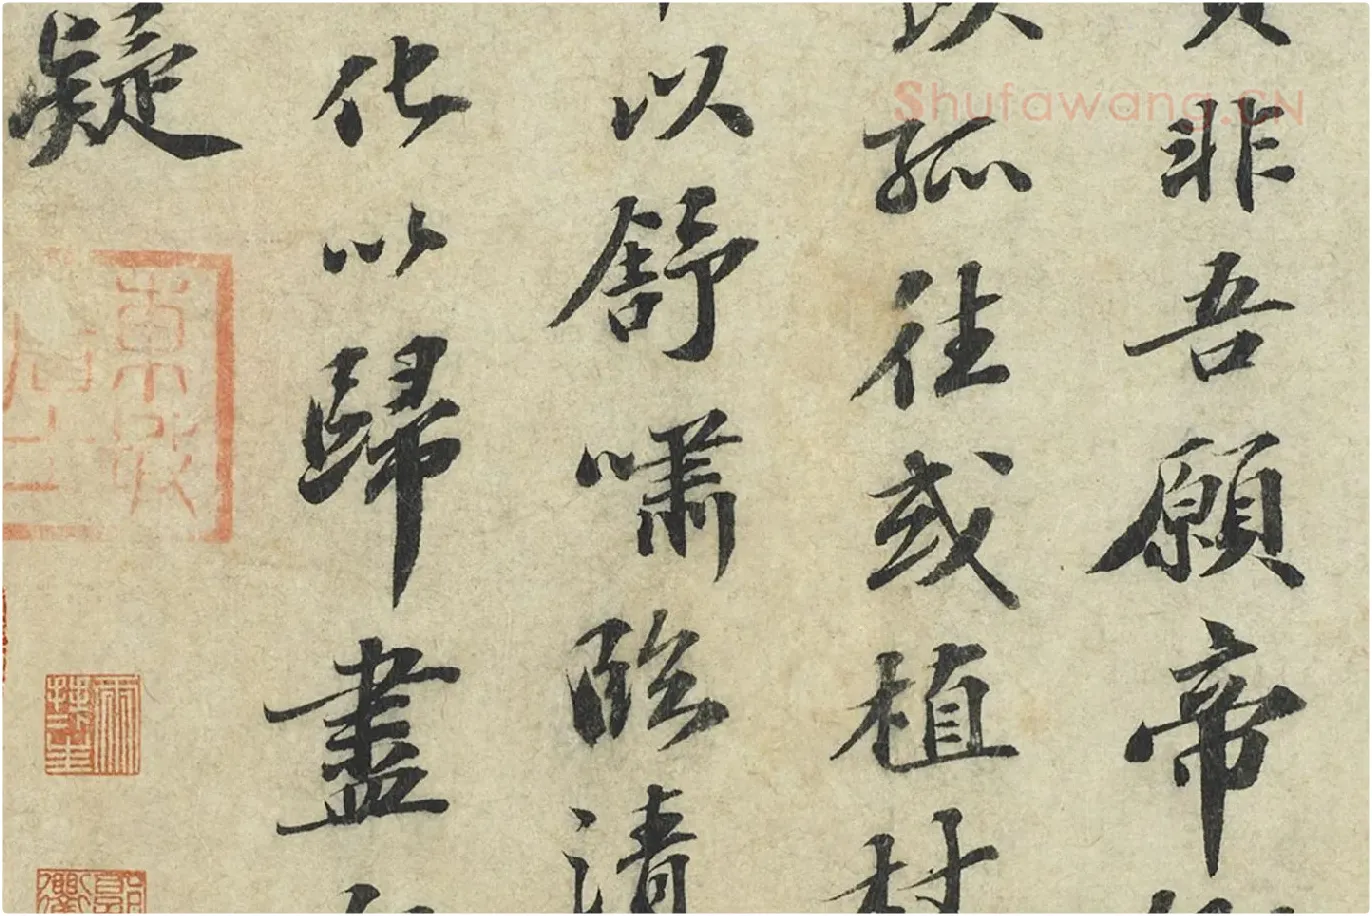 非吾願帝
以孤往或植
以舒嘯臨清
化以歸盡
疑
Shufawang.CN